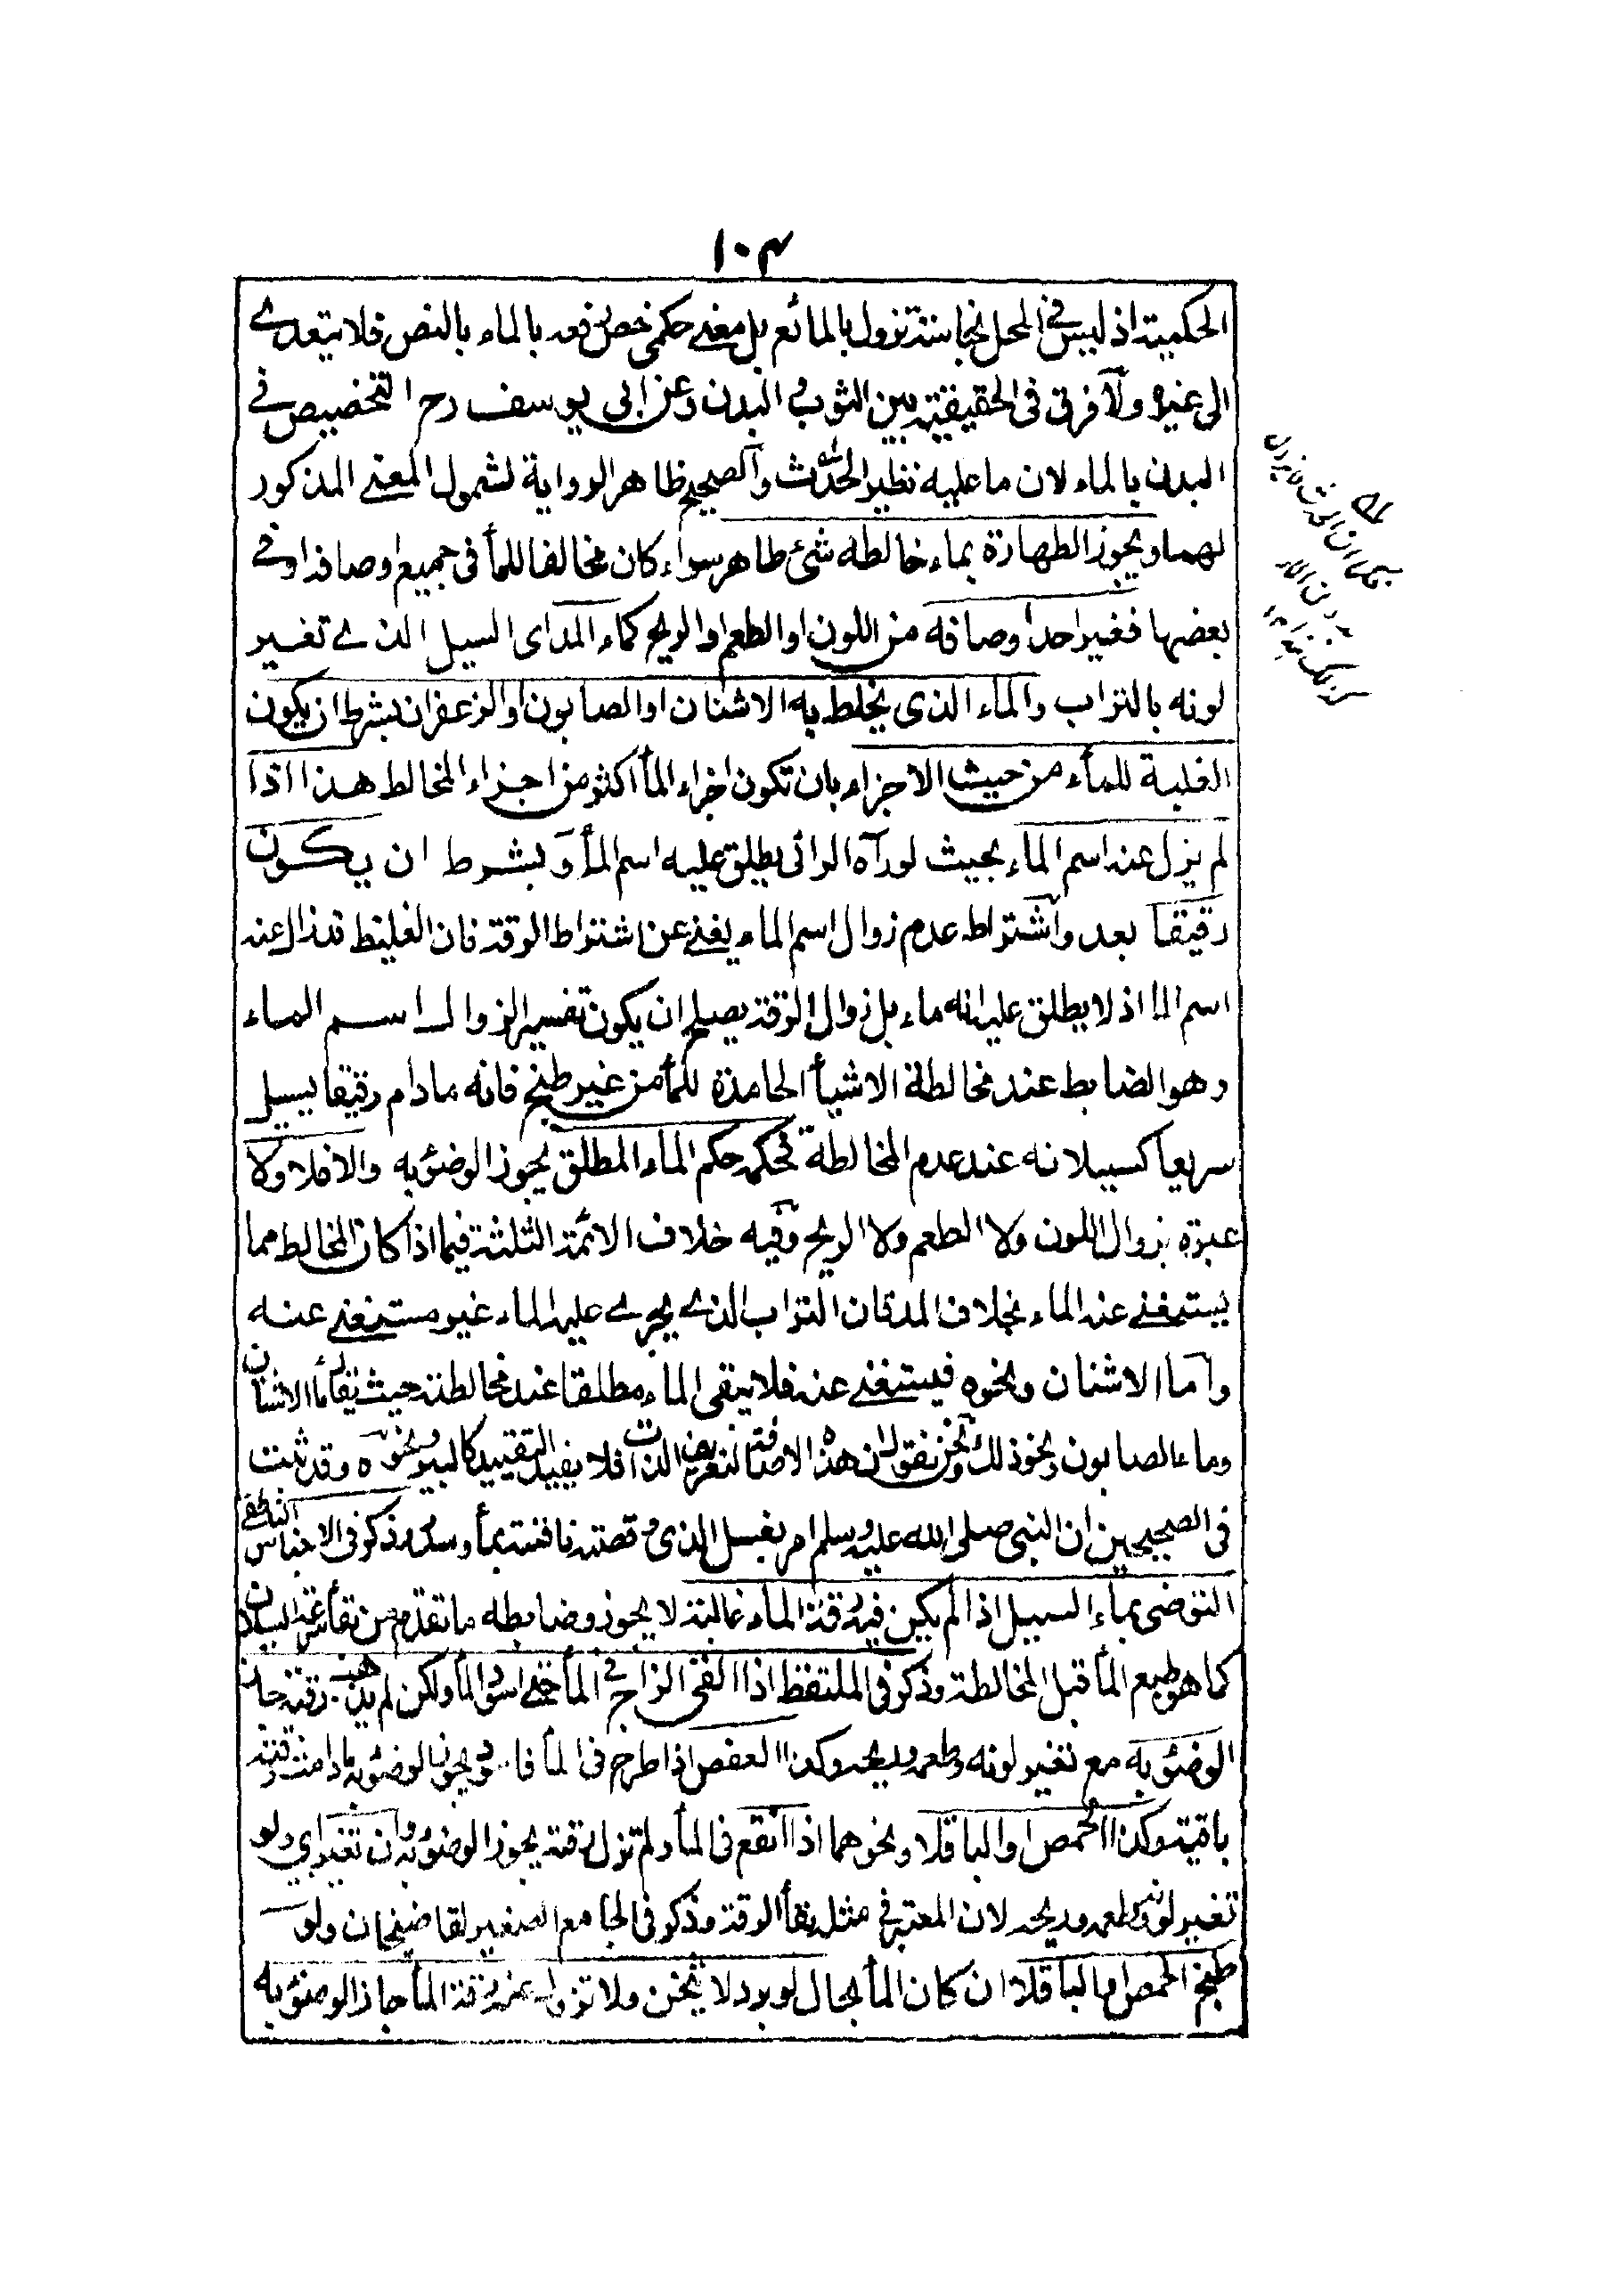 ١٠٣
الحكمية اذ ليس في المحل نجاسة تزول بالمائع بل معنى حكمي خص رفعه بالماء بالنص فلا يتعدى
الى غيره ولا فرق في الحقيقية بين الثوب و البدن وعن ابي يوسف رح التخصيص في
البدن بالماء لان ما عليه نظير الحدث والصحيح ظاهر الرواية لشمول المعنى المذكور
لهما ويجوز الطهارة بماء خالطه شئ طاهر سواء كان مخالفا للمأ في جميع اوصافه او في
بعضها فغير احد اوصافه من اللون او الطعم او الريح كماء المد اى السيل الذى تغير
لونه بالتراب والماء الذى يختلط به الاشنان او الصابون او الزعفران بشرط ان يكون
الغلبة للمأء من حيث الاجزاء بان تكون اجزاء المأ اكثر من اجزاء المخالط هذا اذا
لم يزل عنه اسم الماء بحيث لو رآه الرائى يطلق عليه اسم المأ وبشرط ان يكون
رقيقا بعد واشتراط عدم زوال اسم الماء يغنى عن اشتراط الرقة فان الغليظ قد زال عنه
اسم الما اذ لا يطلق عليه انه ماء بل زوال الرقة يصلح ان يكون تفسير الزوال اسم الماء
وهو الضابط عند مخالطة الاشيأ الجامدة للمأ من غير طبخ فانه ما دام رقيقا يسيل
سريعا كسيلانه عند عدم المخالطة فحكمه حكم الماء المطلق يجوز الوضوٴ به والا فلا ولا
عبرة بزوال اللون ولا الطعم ولا الريح وفيه خلاف الائمة الثلثة فيما اذا كان المخالط مما
يستغنى عنه الماء بخلاف المد فان التراب الذى يجرى عليه الماء غير مستغنى عنه
واما الاشنان ونحوه فيستغنى عنه فلا يبقى الماء مطلقا عند مخالطته حيث يقال ماٴ الاشنان
وماء الصابون ونحو ذلك ونحن نقول ان هذه الاضافة لتعريف الذات فلا يفيد التقييد كالبير ونحوه وقد ثبت
في الصحيحين ان النبي صلى الله عليه وسلم امر بغسل الذى وقصته ناقته بمأ وسدر وذكر في الاجناس الناطفى
التوضى بماء السيل اذا لم يكن فيه رقة الماء غالبة لا يجوز وضابطه ما تقدم من بقأ سرعة السيلان
كما هو طبع المأ قبل المخالطة وذكر في الملتقط اذا القى الزاج في المأ حتى اسود المأ ولكن لم يذهب رقته جاز
الوضوٴ به مع تغير لونه وطعمه وريحه وكذا العفص اذا طرح في المأ فاسود يجوز الوضوٴ به ما دامت رقته
باقية وكذا الحمص او الباقلا ونحوهما اذا انقع في المأ ولم تزل رقته يجوز الوضوٴ به وان تغير اي ولو
تغير لونه وطعمه وريحه لان المعتبر في مثله بقأ الرقة وذكر في الجامع الصغير لقاضيخان ولو
طبخ الحمص او الباقلا ان كان المأ بحال لو برد لا يثخن ولا تزول عنه رقة المأ جاز الوضوٴ به